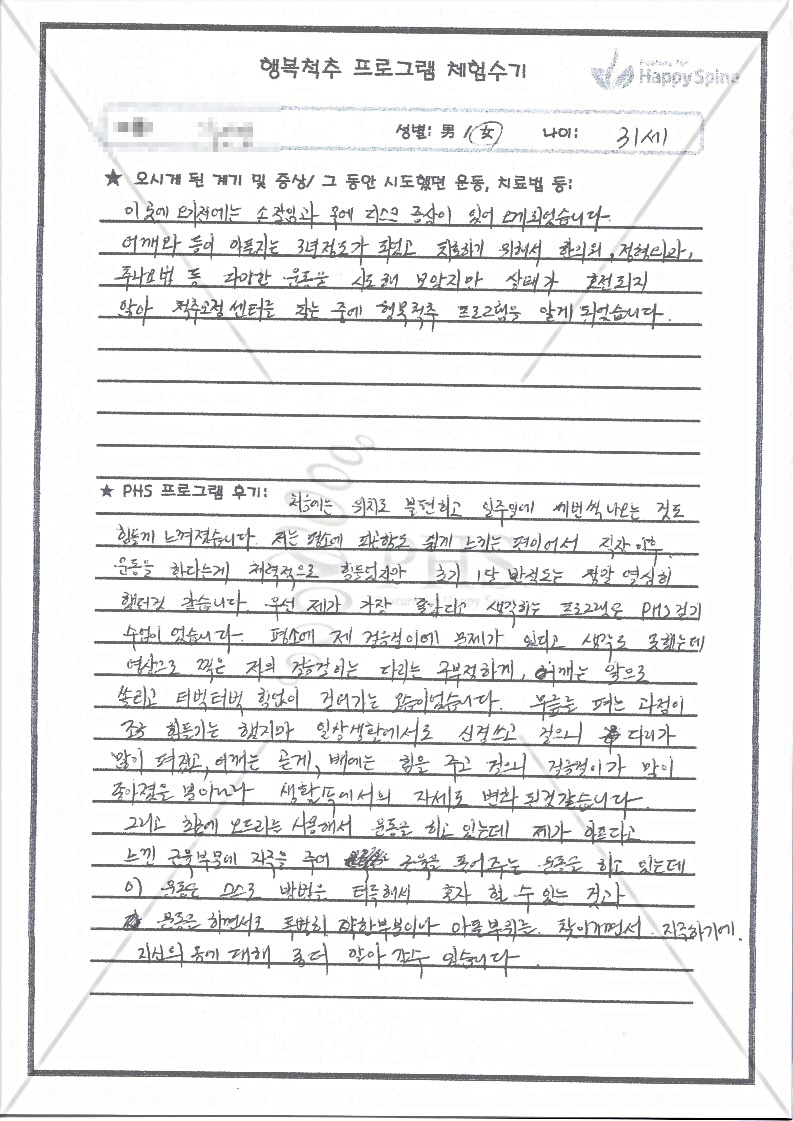 행복척추 프로그램 체험수기
Posture for
Happy Spine
성별: 男 / 女 나이: 31세
★ 오시게 된 계기 및 증상/ 그 동안 시도했던 운동, 치료법 등:
이 곳에 오기전에는 손 저림과 목에 디스크 증상이 있어 오게되었습니다.
어깨와 등이 아픈지는 3년정도가 되었고 치료하기 위해서 한의원, 정형외과,
추나요법 등 다양한 운동을 시도해 보았지만 상태가 호전되지
않아 척추교정 센터를 찾는 중에 행복척추 프로그램을 알게 되었습니다.
★ PHS 프로그램 후기:
처음에는 위치도 불편하고 일주일에 세번씩 나오는 것도
힘들게 느껴졌습니다. 저는 평소에 피곤함도 쉽게 느끼는 편이어서 직장 이후
운동을 한다는게 체력적으로 힘들었지만 초기 1달 반정도는 정말 열심히
했던것 같습니다. 우선 제가 가장 좋았다고 생각하는 프로그램은 PHS 걷기
수업이 었습니다. 평소에 제 걸음걸이에 문제가 있다고 생각도 못했는데
영상으로 찍은 저의 걸음걸이는 다리는 구부정하게, 어깨는 앞으로
쏠리고 터벅터벅 힘없이 걸어가는 모습이었습니다. 무릎을 펴는 과정이
조금 힘들기는 했지만 일상생활에서도 신경쓰고 걸으니 다리가
많이 펴졌고, 어깨는 곧게, 배에는 힘을 주고 걸으니 걸음걸이가 많이
좋아졌을 뿐아니라 생활속에서의 자세도 변화 된것같습니다.
그리고 오드리는 사용해서 운동을 하고 있는데 제가 아프다고
느낀 근육부목에 자극을 주어 근육을 풀어주는 운동을 하고 있는데
이 운동은 스스로 방법을 터득해서 혼자 할 수 있는 것과
운동을 하면서도 특별히 약한부분이나 아픈부위를 찾아가면서 자극하기에
자신의 몸에 대해 좀더 알아 갈수 있습니다.